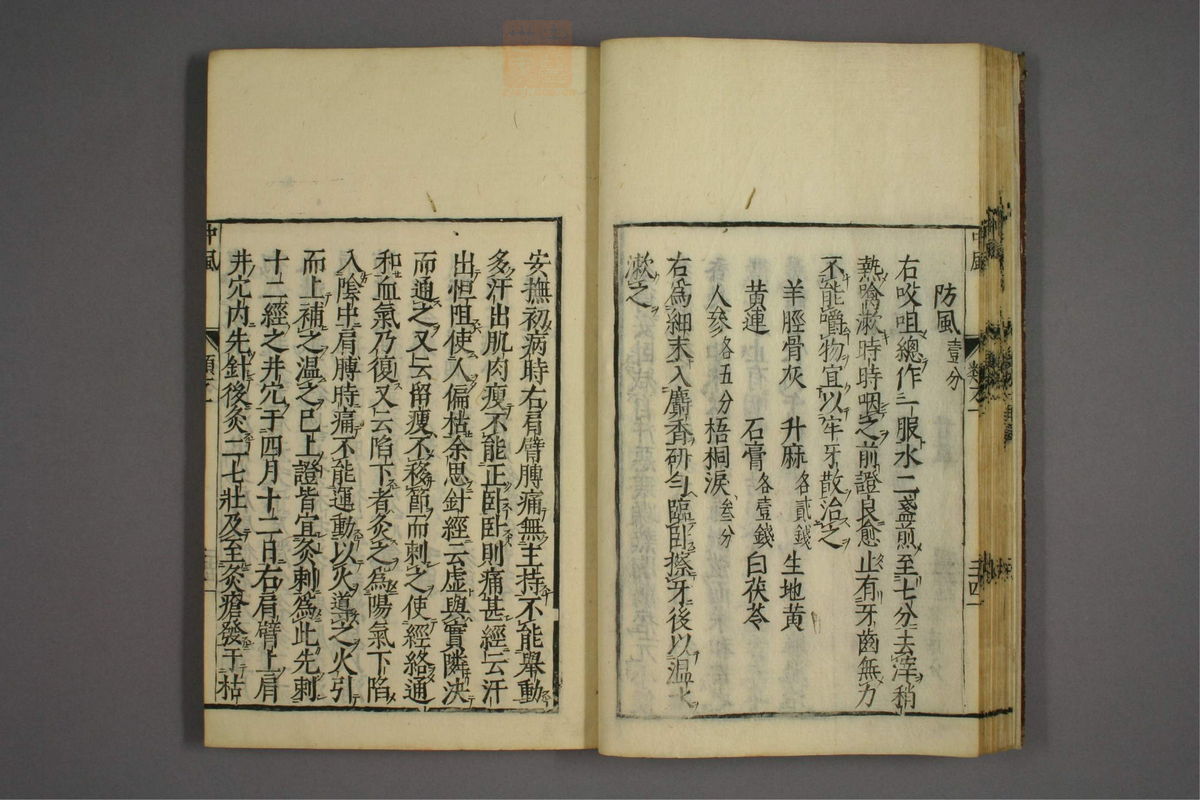 中風
類卆一
防風壹分
右㕮咀總作一服水二盞煎至七分去滓稍
熱噙漱時時咽之前證良愈止有牙齒無力
不能嚼物宜以牢牙散治之
羊脛骨灰 升麻各貳錢 生地黄
黄連 石膏各壹錢 白茯苓
人參各五分 梧桐淚叄分
右爲細末入麝香研匀臨臥擦牙後以温水
漱之
安撫初病時右肩臂膊痛無主持不能舉動
多汗出肌肉瘦不能正卧卧則痛甚經云汗
出偏沮使人偏枯余思針經云虚與實隣決
而通之又云留瘦不移節而刺之使經絡通
和血氣乃復又云陷下者灸之爲陽氣下陷
入陰中肩膊時痛不能運動以火導之火引
而上補之温之已上證皆宜灸刺爲此先刺
十二經之井穴于四月十二日右肩臂上肩
井穴内先針後灸二七壯及至灸瘡發于枯
中風